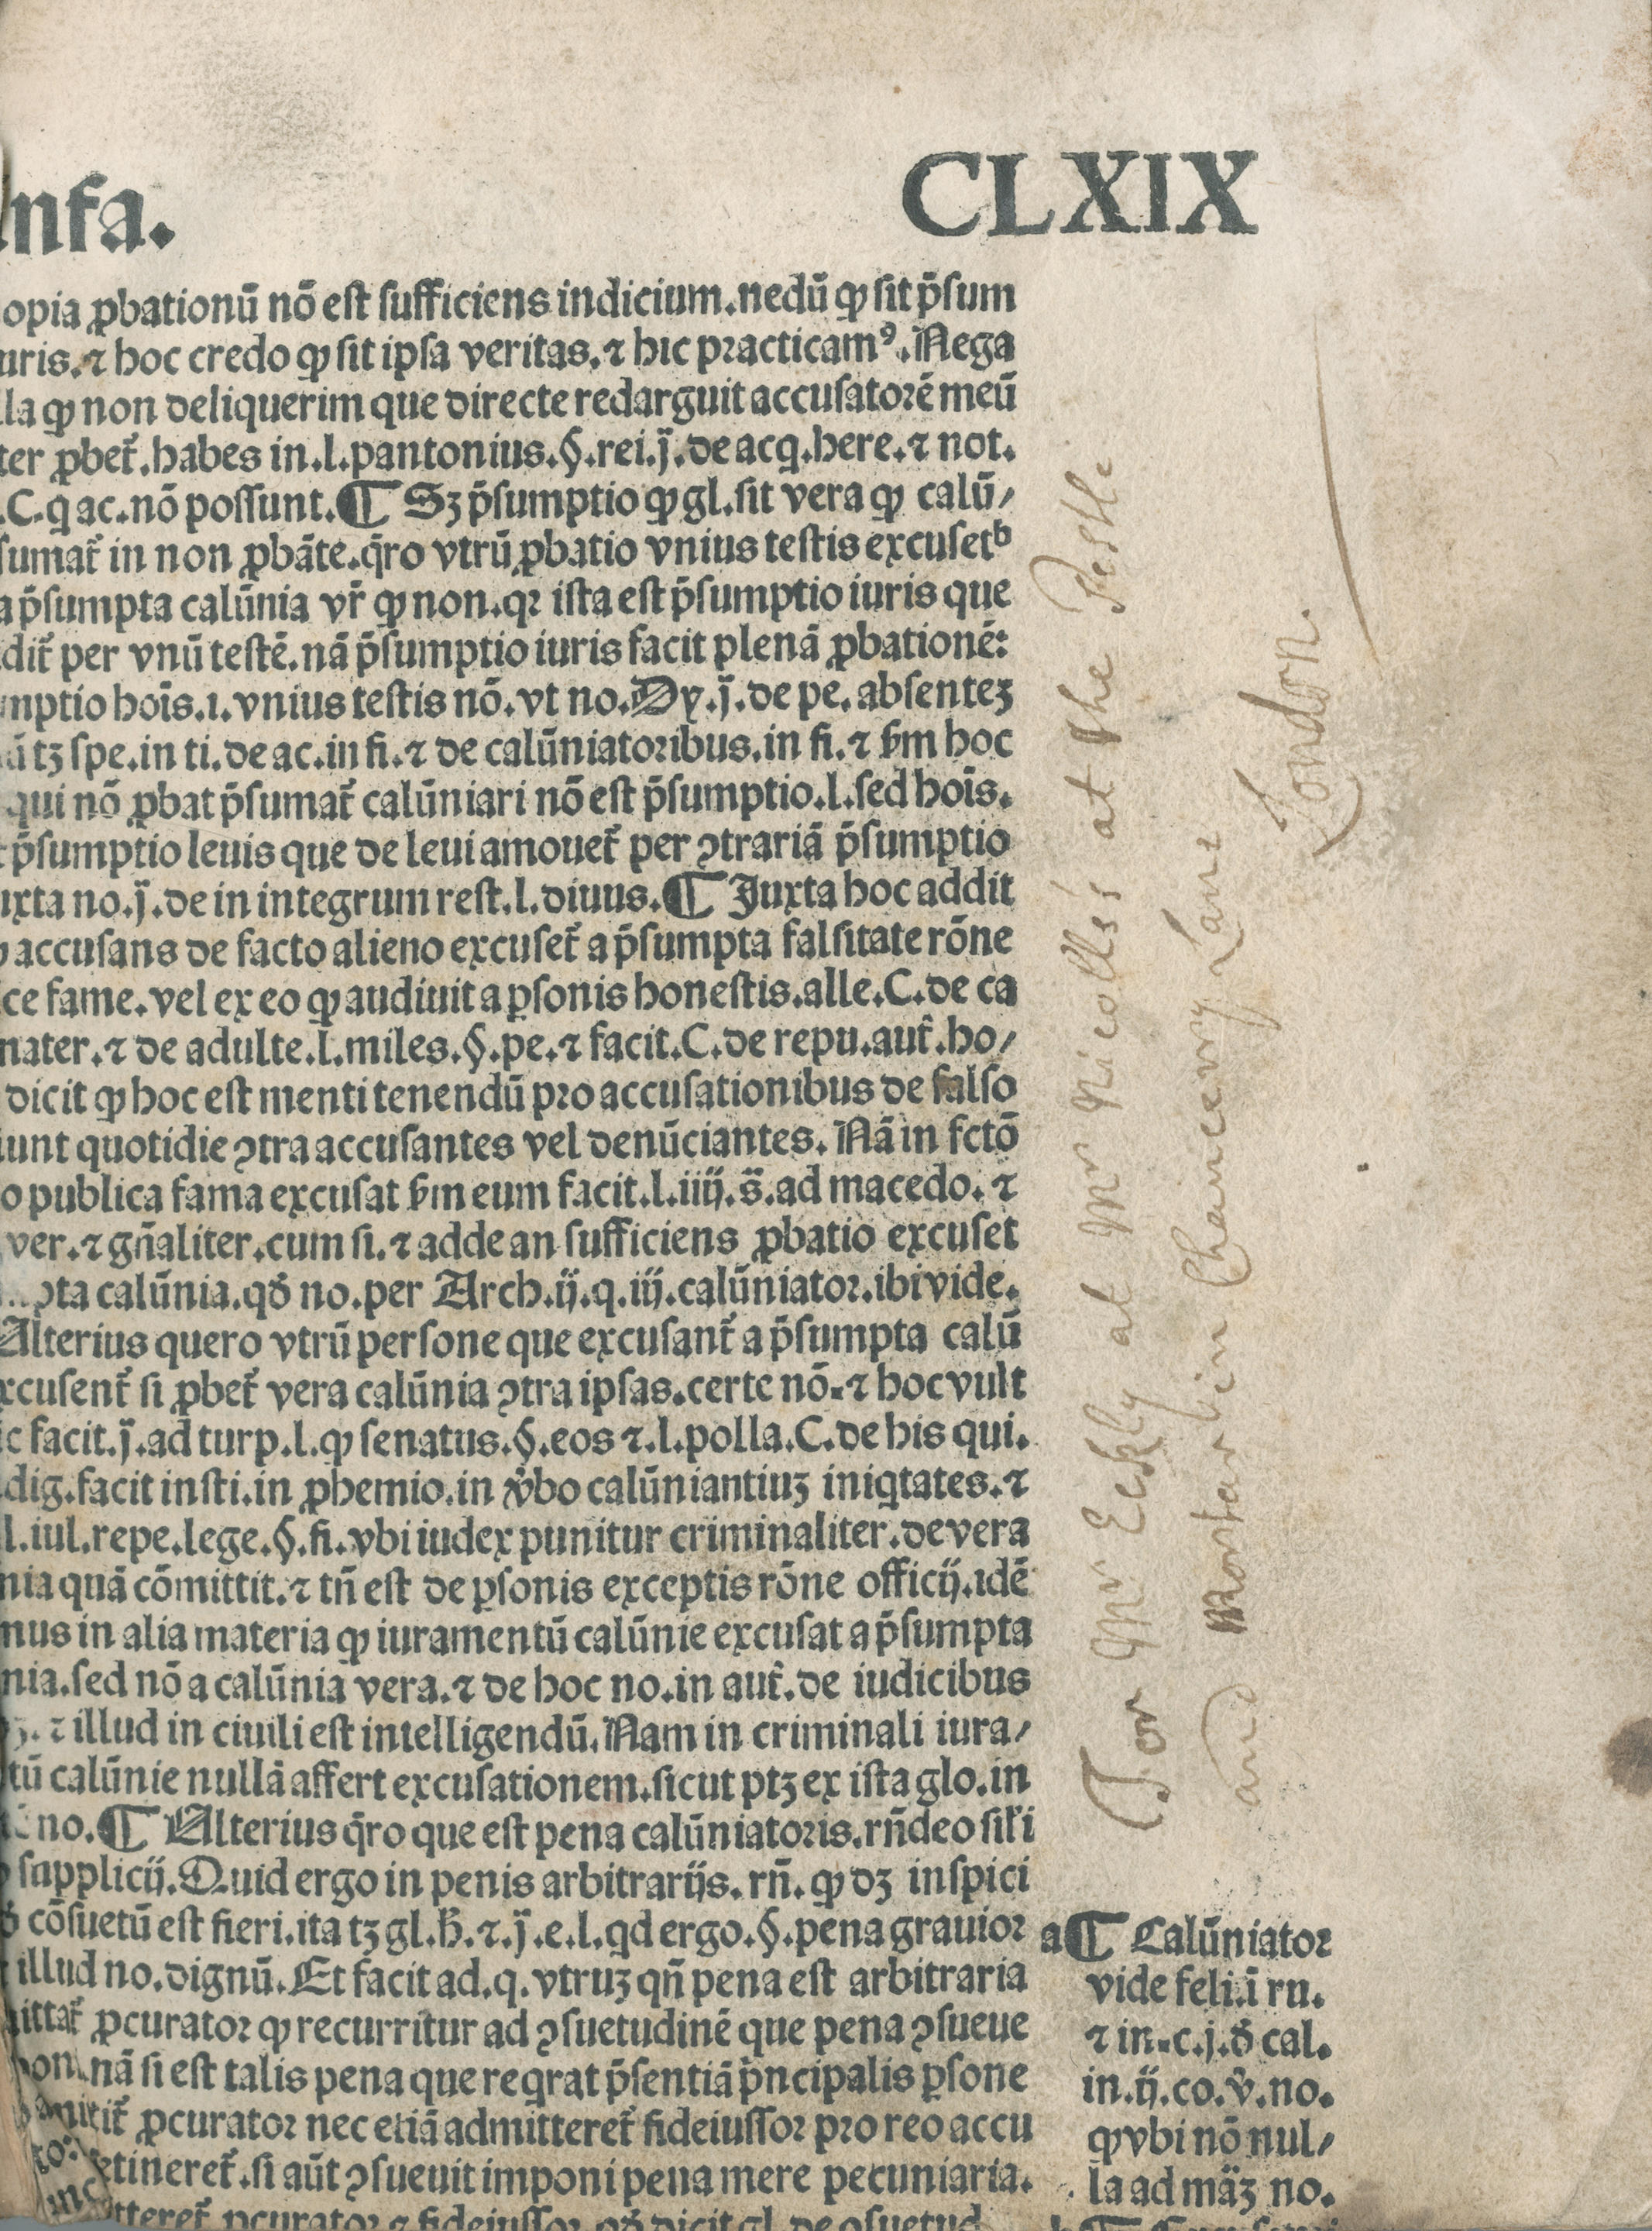 nsa.
CLXIX
opia ꝓbationū nō est sufficiens indicium.nedū ꝙ sit p̄sum
uris.⁊ hoc credo ꝙ sit ipsa veritas.⁊ hic practicamꝰ.Nega
la ꝙ non deliquerim que directe redarguit accusatorē meū
ter ꝓbet̄.habes in.l.pantonius.§.rei.j̈.de acq.here.⁊ not.
.C.q ac.nō possunt.¶ Sꝫ p̄sumptio ꝙ gl.sit vera ꝙ calū/
sumat̄ in non ꝓbāte.q̄ro vtrū ꝓbatio vnius testis excusetᵇ
a p̄sumpta calūnia vr̄ ꝙ non.qꝛ ista est p̄sumptio iuris que
dit̄ per vnū testē.nā p̄sumptio iuris facit plenā ꝓbationē:
mptio hoīs.ı.vnius testis nō.vt no.Dy.j̈.de pe.absenteꝫ
ū tꝫ spe.in ti.de ac.in fi.⁊ de calūniatoribus.in fi.⁊ ẜm hoc
qui nō ꝓbat p̄sumat̄ calūniari nō est p̄sumptio.l.sed hoīs.
p̄sumptio leuis que de leui amouet̄ per ꝯtrariā p̄sumptio
uxta no.j̈.de in integrum rest.l.diuus.¶ Iuxta hoc addit
accusans de facto alieno excuset̄ a p̄sumpta falsitate rōne
ce fame.vel ex eo ꝙ audiuit a ꝑsonis honestis.alle.C.de ca
mater.⁊ de adulte.l.miles.§.pe.⁊ facit.C.de repu.aut̄.ho/
dicit ꝙ hoc est menti tenendū pro accusationibus de falso
iunt quotidie ꝯtra accusantes vel denūciantes.Nā in fctō
o publica fama excusat ẜm eum facit.l.iiij̈.s̈.ad macedo.⁊
ver.⁊ gn̄aliter.cum si.⁊ adde an sufficiens ꝓbatio excuset
pta calūnia.qđ no.per Arch.ij̈.q.iij̈.calūniator.ibi vide.
Alterius quero vtrū persone que excusant̄ a p̄sumpta calū
xcusent̄ si ꝓbet̄ vera calūnia ꝯtra ipsas.certe nō.⁊ hoc vult
ic facit.j̈.ad turp.l.ꝙ senatus.§.eos ⁊.l.polla.C.de his qui.
dig.facit insti.in ꝓhemio.in v̄bo calūniantiuꝫ iniqtates.⁊
l.iul.repe.lege.§.fi.vbi iudex punitur criminaliter.de vera
nia quā cōmittit.⁊ tn̄ est de ꝑsonis exceptis rōne officij̈.idē
mus in alia materia ꝙ iuramentū calūnie excusat a p̄sumpta
nia.sed nō a calūnia vera.⁊ de hoc no.in aut̄.de iudicibus
ꝫ.⁊ illud in ciuili est intelligendū.Nam in criminali iura/
tū calūnie nullā affert excusationem.sicut ptꝫ ex ista glo.in
no.¶ Alterius q̄ro que est pena calūniatoris.rn̄deo sil̄i
supplicij̈.Quid ergo in penis arbitrarij̈s.rn̄.ꝙ dꝫ inspici
cōsuetū est fieri.ita tꝫ gl.h̄.⁊.j̈.e.l.qd ergo.§.pena grauior
illud no.dignū.Et facit ad.q.vtruꝫ qn̄ pena est arbitraria
ittat̄ ꝓcurator ꝙ recurritur ad ꝯsuetudinē que pena ꝯsueue
pon.nā si est talis pena que reqrat p̄sentiā p̄ncipalis ꝑsone
mitit̄ ꝓcurator nec etiā admitteret̄ fideiussor pro reo accu
etineret̄.si aūt ꝯsueuit imponi pena mere pecuniaria.
tteret̄ ꝓcurator ⁊ fideiussor.qđ dicit gl.de ꝯsuetud
a¶ Calūniator
vide feli.ī ru.
⁊ in.c.j.đ cal.
in.ij̈.co.v̄.no.
ꝙ vbi nō nul/
la ad māꝫ no.
For Mr Eckly at Mr Nicolls's at the Pestle
and Mortar in Chancery Lane
London.